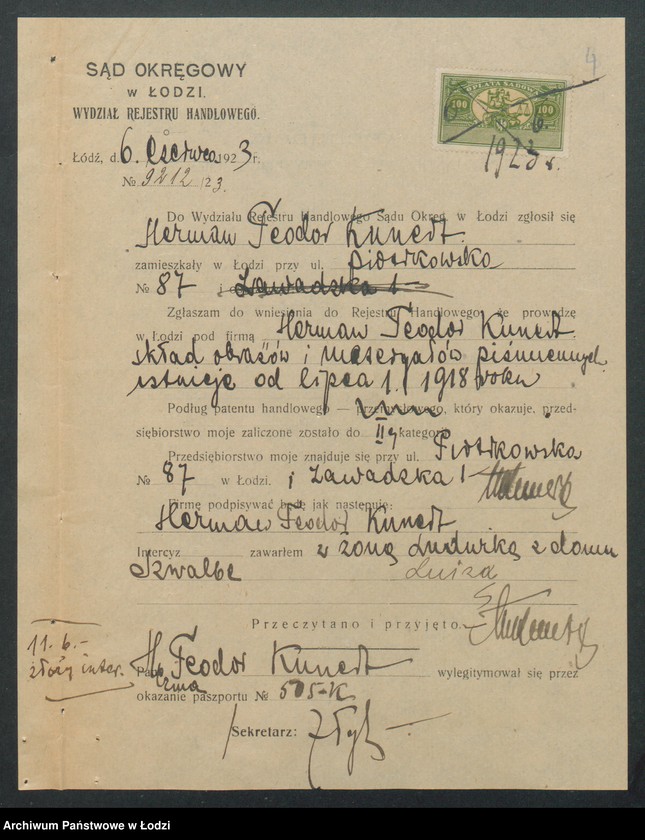 4
SĄD OKRĘGOWY
w ŁODZI.
WYDZIAŁ REJESTRU HANDLOWEGO.
OPŁATA SĄDOWA
100 100
6.
1923 r.
Łódź, d. 6. Czerwca 1923 r.
№ 9212/23.
Do Wydziału Rejestru Handlowego Sądu Okręg. w Łodzi zgłosił się
Herman Teodor Kunert
zamieszkały w Łodzi przy ul. Piotrkowska
№ 87 i Zawadzka 1
Zgłaszam do wniesienia do Rejestru Handlowego, że prowadzę
w Łodzi pod firmą Herman Teodor Kunert
skład obrazów i materyałów piśmiennych
istnieje od lipca 1. 1918 roku
Podług patentu handlowego — przemysłowego, który okazuje, przed-
siębiorstwo moje zaliczone zostało do II kategorji
Przedsiębiorstwo moje znajduje się przy ul. Piotrkowska
№ 87 w Łodzi. i Zawadzka 1
Firmę podpisywać będę jak następuje:
Herman Teodor Kunert
Intercyz zawarłem z żoną Ludwiką z domu
Szwalbe Luiza
Przeczytano i przyjęto.
11. 6. –
złoży inter.
Pan H Teodor Kunert wylegitymował się przez
okazanie paszportu № 505-K
Sekretarz:
Archiwum Państwowe w Łodzi